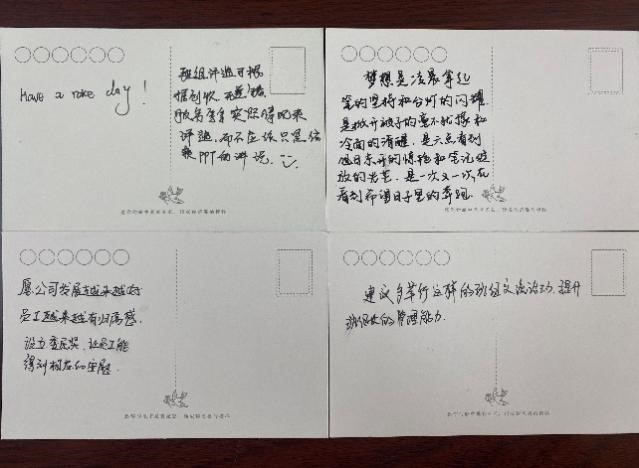 Have a nice day!
班组评选可根
据创收、
服务等实际情况来
评选，而不应该只是依
靠PPT的评说.
梦想是凌晨拿起
笔的坚持和台灯的闪耀
是掀开被子的毫不犹豫和
冷雨的清醒，是六点看到
旭日东升的惊艳和笔记绽
放的光芒，是一次又一次在
看到希望日子里的奔跑.
愿公司发展越来越好
员工越来越有归属感.
设立委屈奖，让员工能
得到相应的
建议多举行这样的班组交流活动，提升
的管理能力.